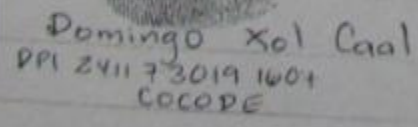 Domingo Xol Caal
DPI 2411 73019 1601
COCODE